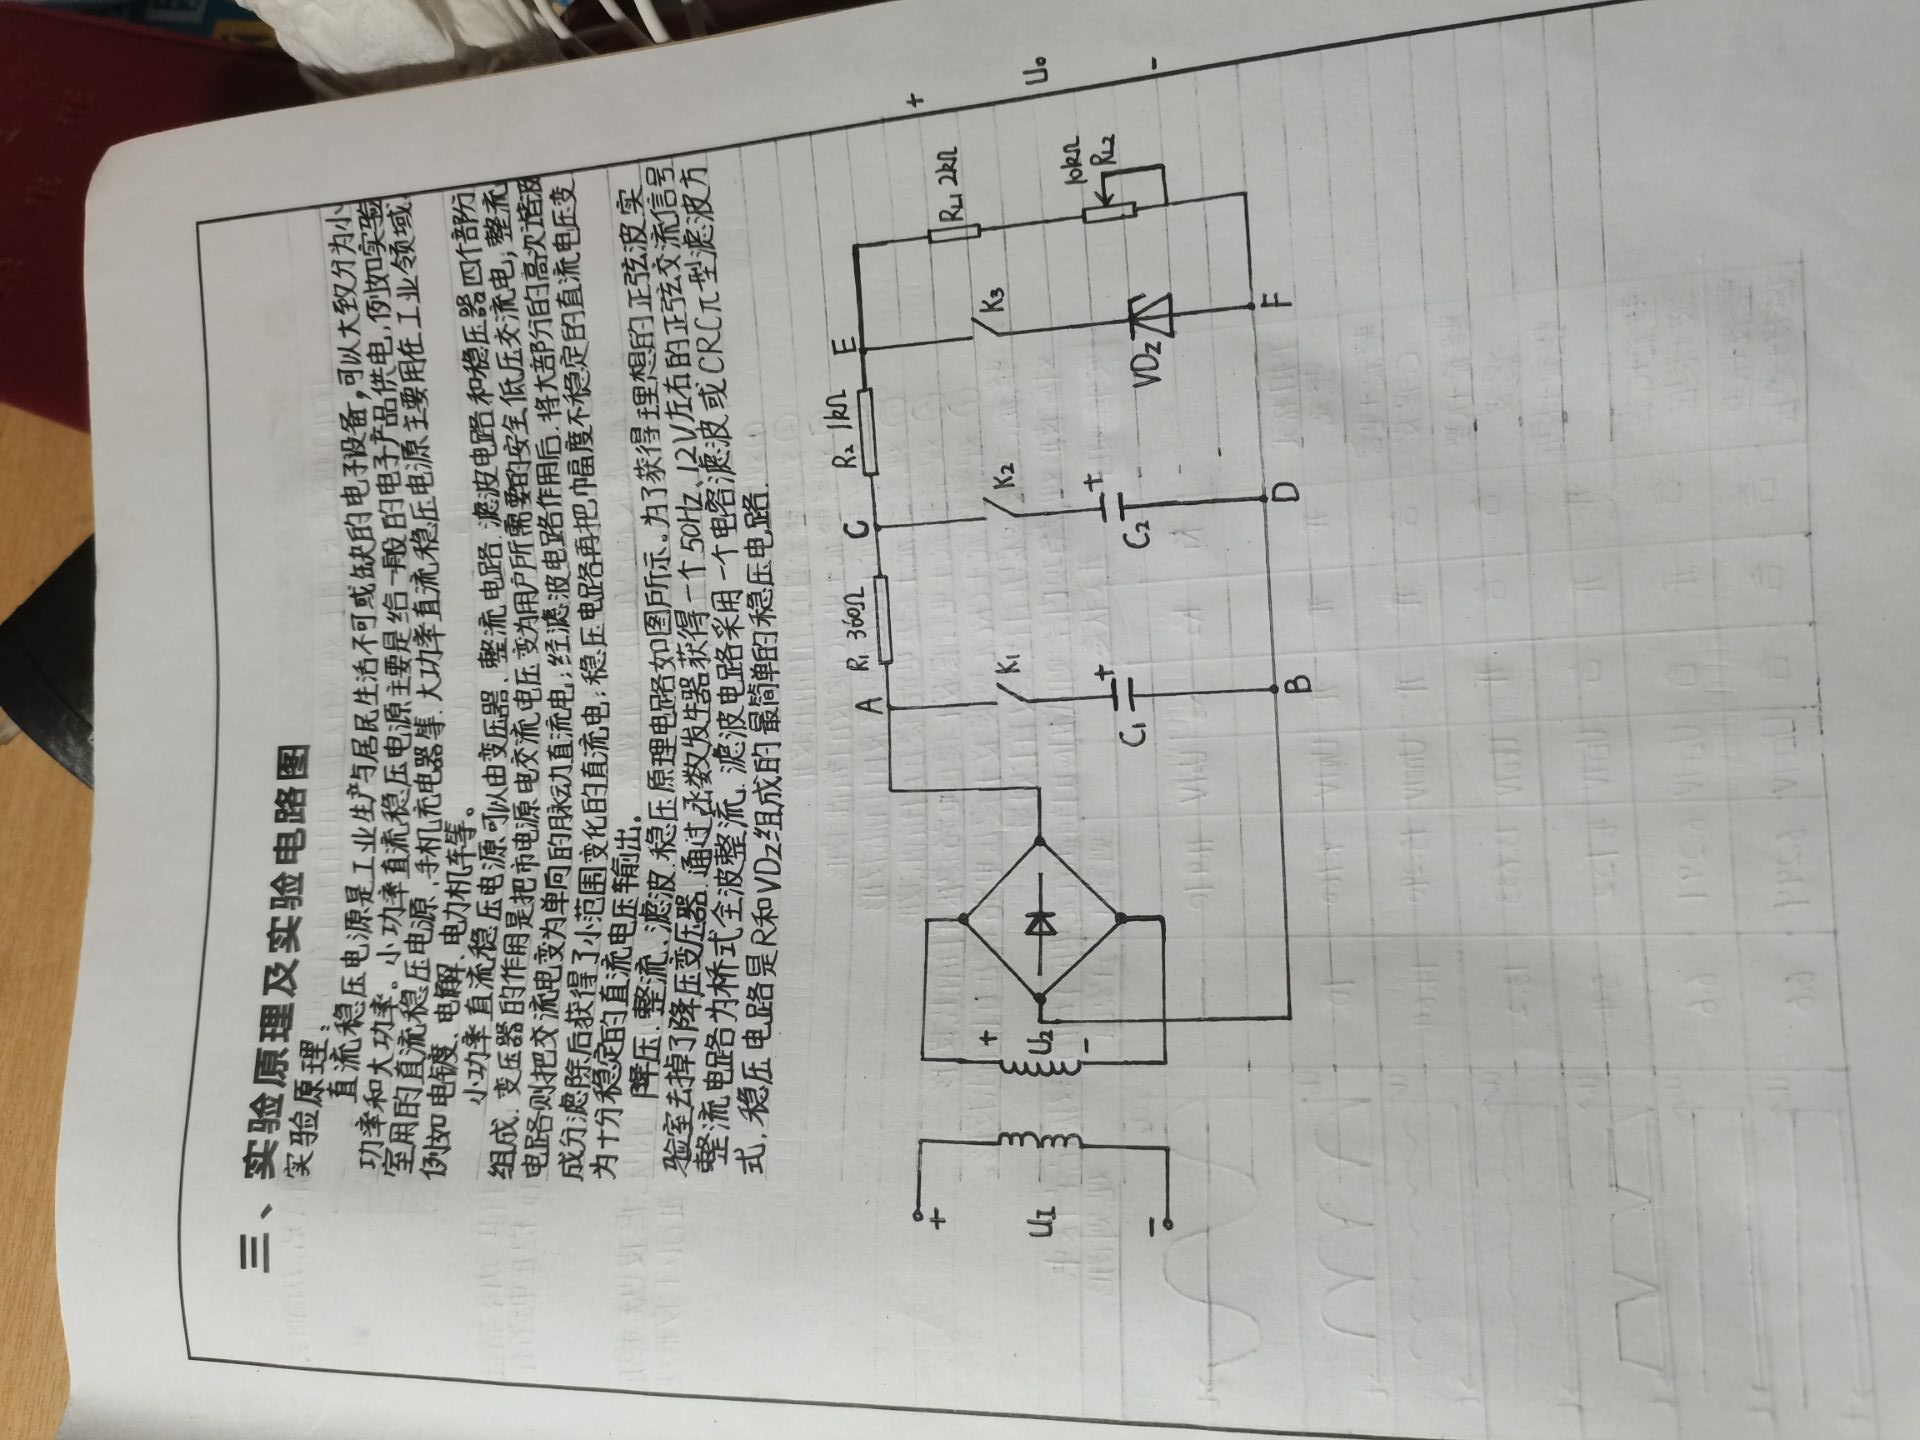 三、实验原理及实验电路图
实验原理：
直流稳压电源是工业生产与居民生活不可或缺的电子设备，可以大致分为小
功率和大功率。小功率直流稳压电源主要是给一般的电子产品供电，例如实验
室用的直流稳压电源、手机充电器等.大功率直流稳压电源主要用在工业领域.
例如电镀、电解、电力机车等。
小功率直流稳压电源可以由变压器、整流电路.滤波电路和稳压器四个部分
组成.变压器的作用是把市电源电交流电压变为用户所需要的安全低压交流电；整流
电路则把交流电变为单向的脉动直流电；经滤波电路作用后.将大部分的高次谐波
成分滤除后获得了小范围变化的直流电；稳压电路再把幅度不稳定的直流电压变
为十分稳定的直流电压输出。
降压、整流、滤波.稳压原理电路如图所示。为了获得理想的正弦波实
验室去掉了降压变压器.通过函数发生器获得一个50Hz、12V左右的正弦交流信号
整流电路为桥式全波整流.滤波电路采用一个电容滤波或CRCπ型滤波方
式.稳压电路是R和VDz组成的最简单的稳压电路.
A R₁ 360Ω C R₂ 1kΩ E
+ +
+ RL1 2kΩ
K₁ K₂ K₃
UI U₂ U₀
- 10kΩ
+ + RL2
C₁ C₂ VDz
- -
B D F